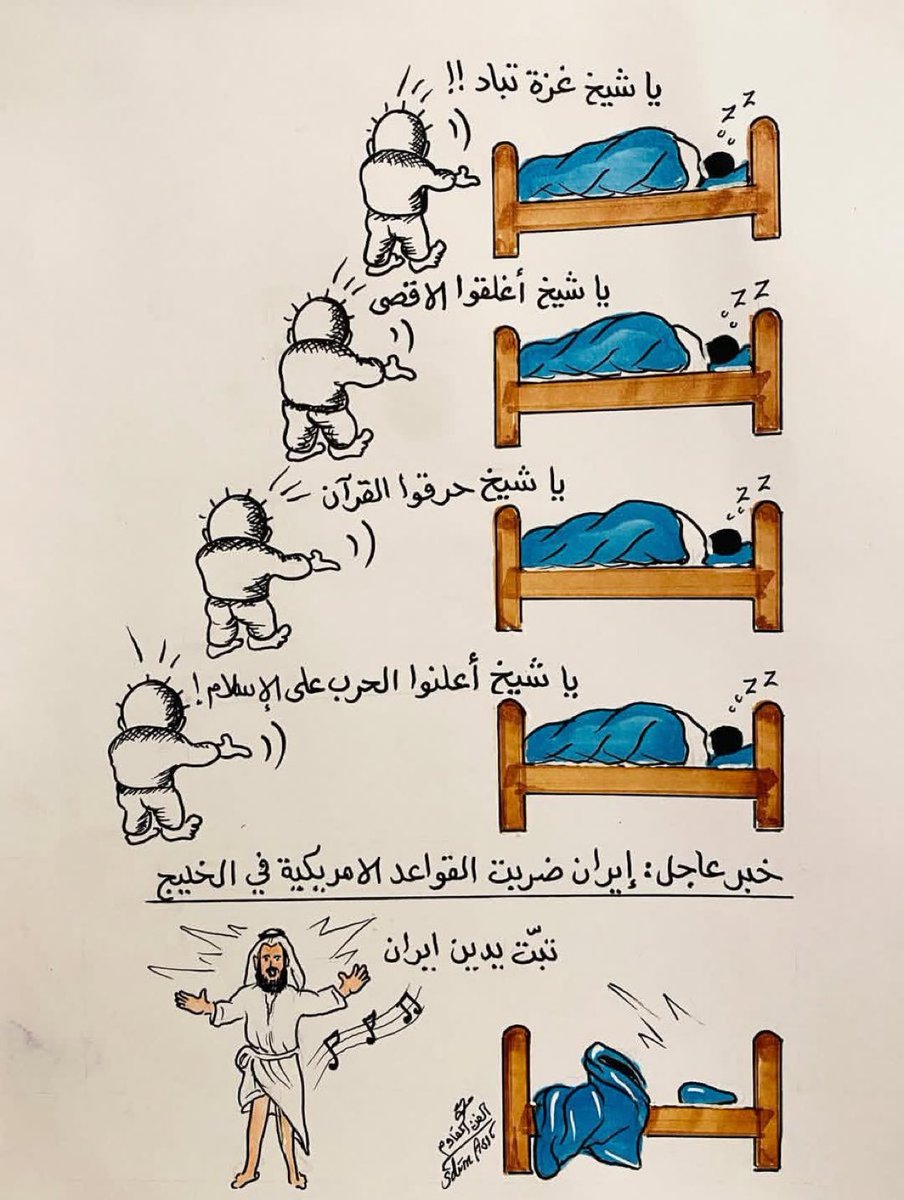 يا شيخ غزة تباد !!
z z
يا شيخ أغلقوا الاقصى
z z
يا شيخ حرقوا القرآن
z z
يا شيخ أعلنوا الحرب على الإسلام !
z z
خبر عاجل: إيران ضربت القواعد الامريكية في الخليج
تبّت يدين ايران
الفن المقاوم
Selim Assi